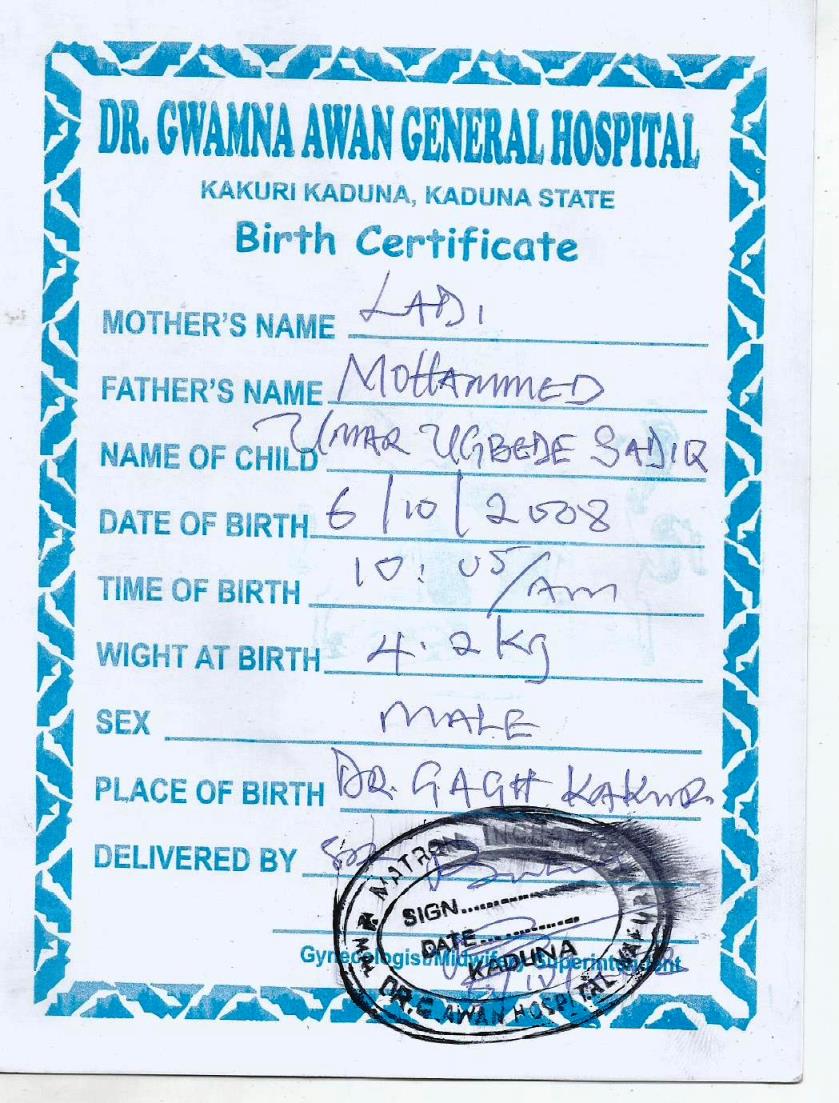 DR. GWAMNA AWAN GENERAL HOSPITAL
KAKURI KADUNA, KADUNA STATE
Birth Certificate
MOTHER'S NAME LADI
FATHER'S NAME MOHAMMED
NAME OF CHILD UMAR UGBEDE SADIQ
DATE OF BIRTH 6/10/2008
TIME OF BIRTH 10:05/Am
WIGHT AT BIRTH 4.2kg
SEX MALE
PLACE OF BIRTH DR. GAGH KAKURI
DELIVERED BY
MATRON INCHARGE
SIGN..............
DATE..............
KADUNA
Gynecologist/Midwifery Superintendent
DR. G. AWAN HOSPITAL KAKURI